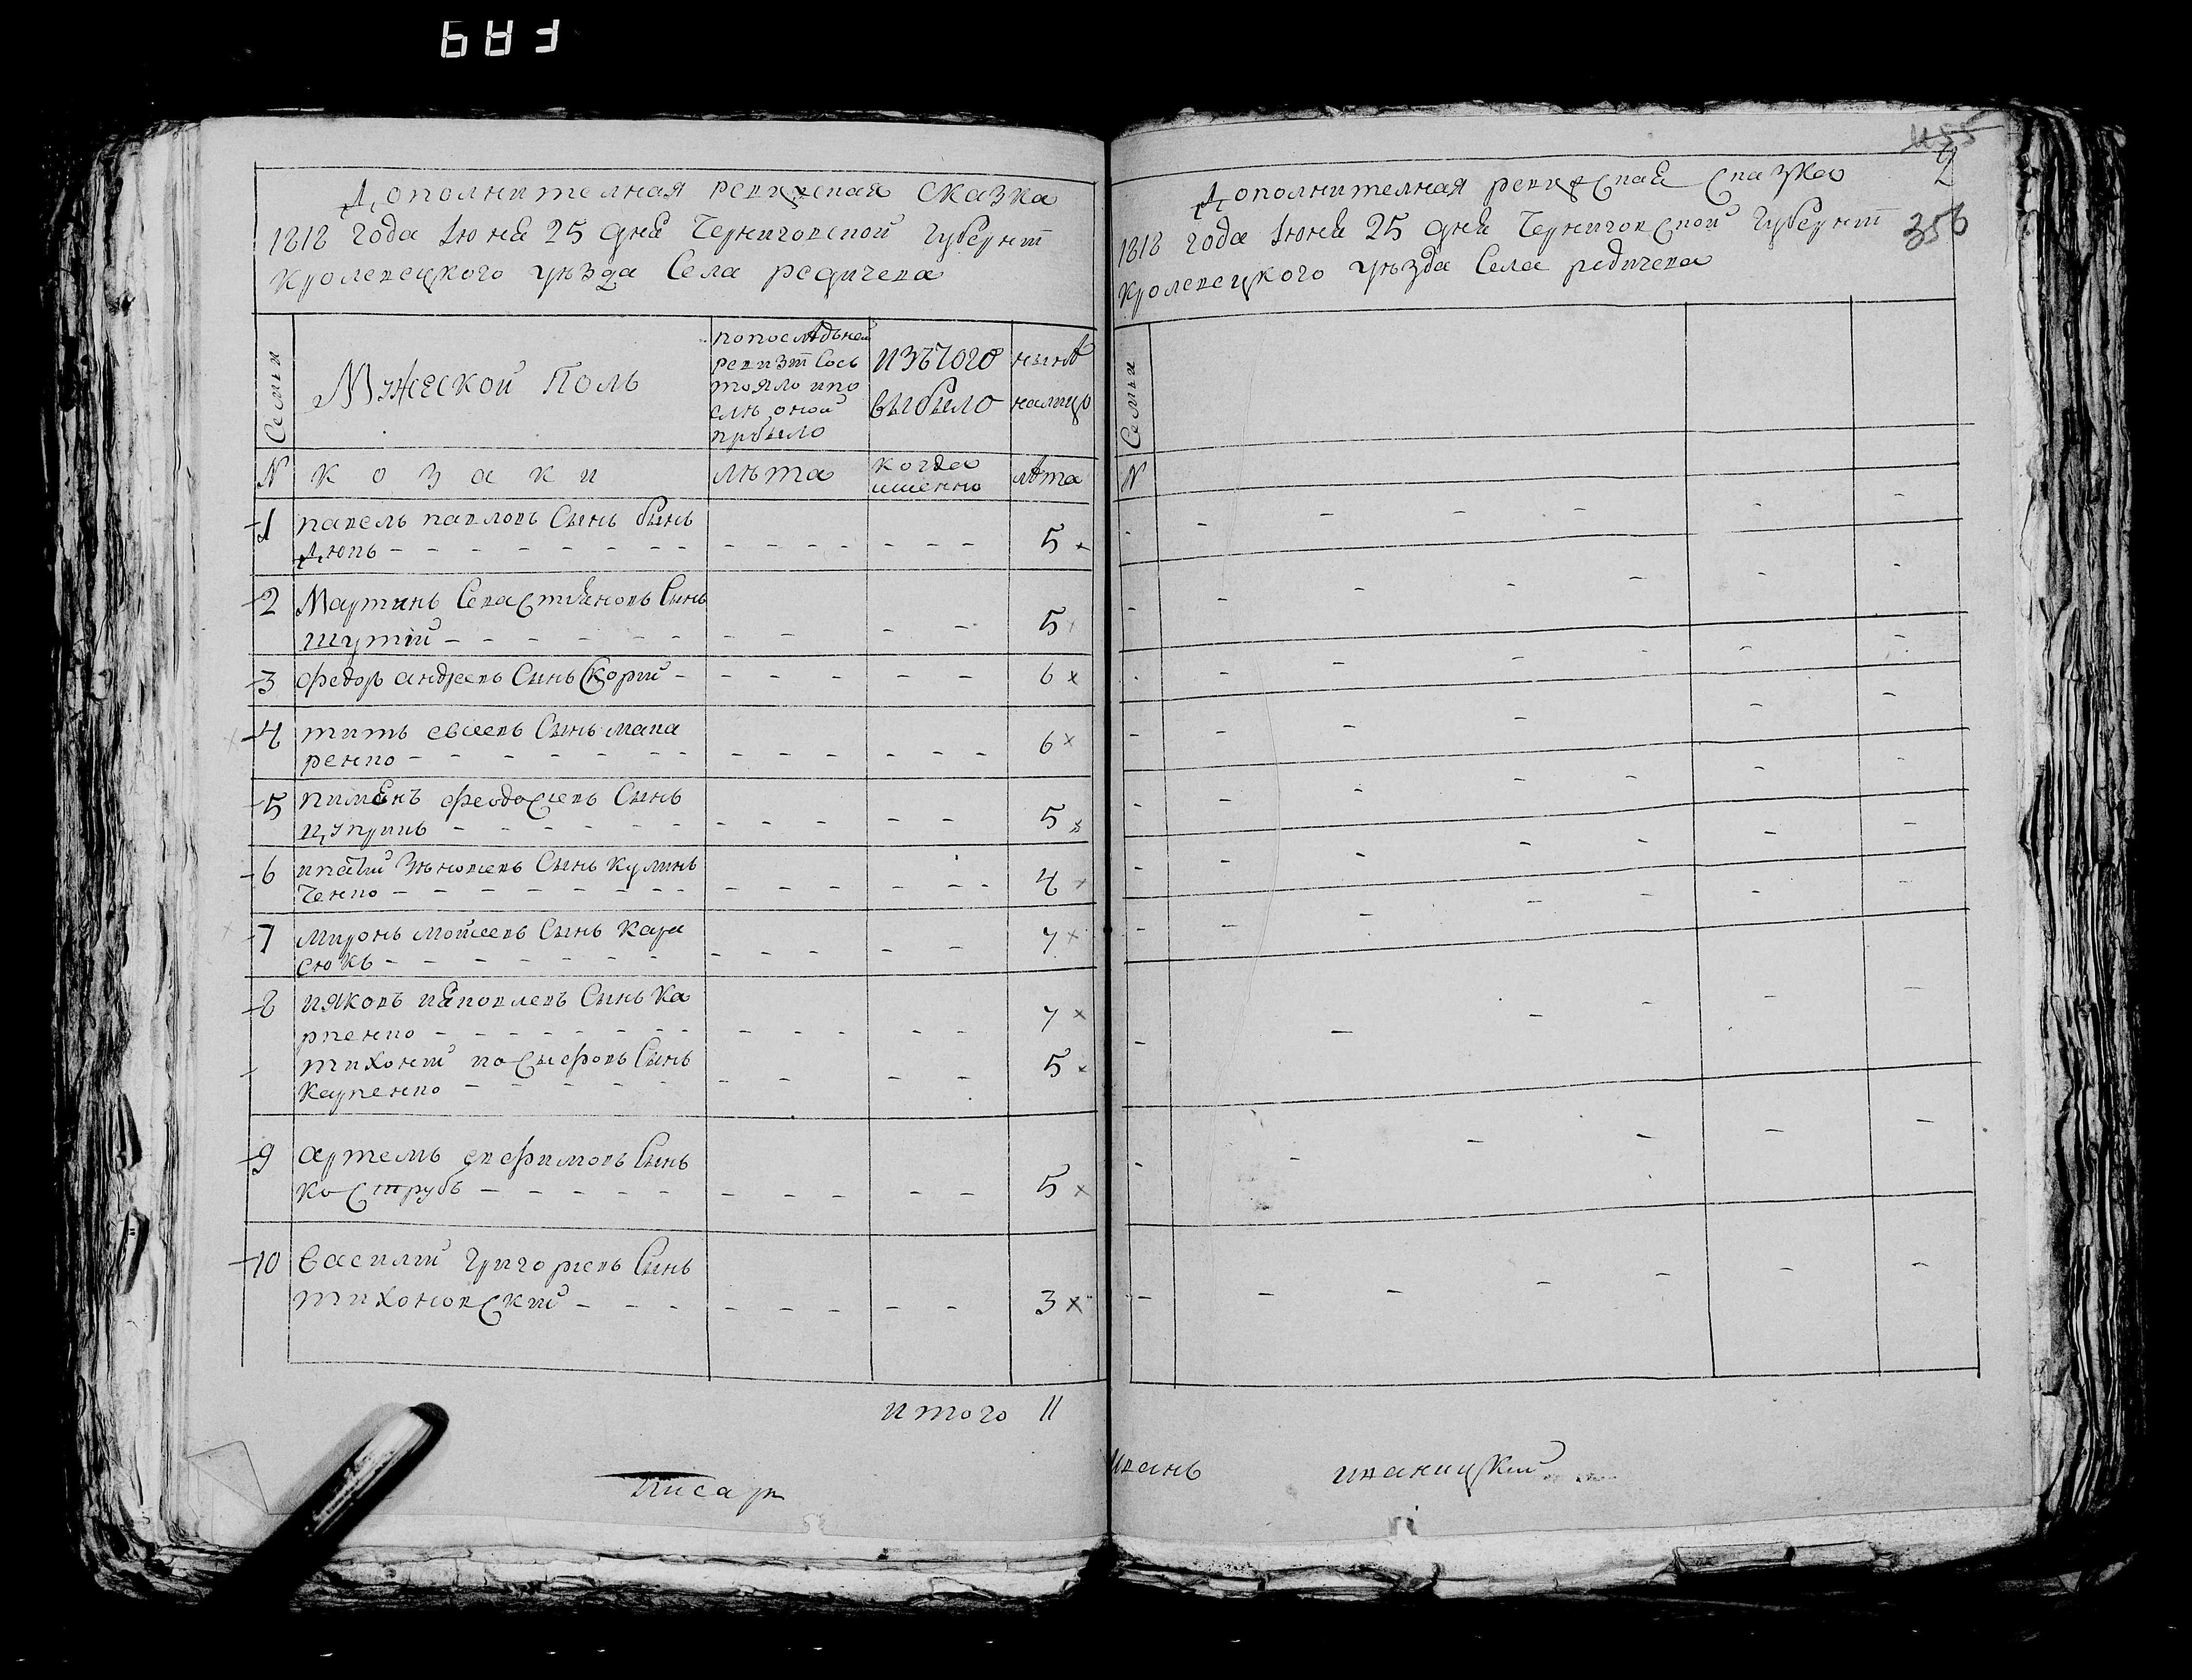 Дополнителная ревизская сказка
1818 года Iюня 25 дня Черниговской Губернiи
Кролевецкого уѣзда Села редичева
Семьи
Мужеской Полъ
попослѣдьней
ревизiи Сось
тояло ипо
слѣ оной
прбыло
изътого
выбыло
нынѣ
налицо
N
козаки
лѣта
когда
именно
лѣта
1 павелъ павловъ Сынъ бынь
дюгъ 5
2 Мартинъ Севастияновъ Сынъ
шутий 5
3 федоръ андреевъ Сынъ Скорий 6
4 титъ евсеевъ Сынъ мака
ренко 6
5 пименъ феодосиевъ Сынъ
цуприкъ 5
6 ипатий Зѣновиевъ Сынъ кулинь
ченко 4
7 миронъ мойсеевъ Сынъ кара
сюкъ 7
8 ияковъ ияковлевъ Сынъ Ка
рпенко 7
тихоний иосыфовъ Сынъ
карпенко 5
9 артемъ ефимовъ Сынъ
кострубъ 5
10 Василий Григориевъ Сынъ
тихоновский 3
итого 11
Писарь
2
356
Дополнителная ревизская Сказка
1818 года Iюня 25 дня Черниговской Губернiи
Кролевецкого уѣзда Села редичева
Семьи
N
Иванъ иваницкий